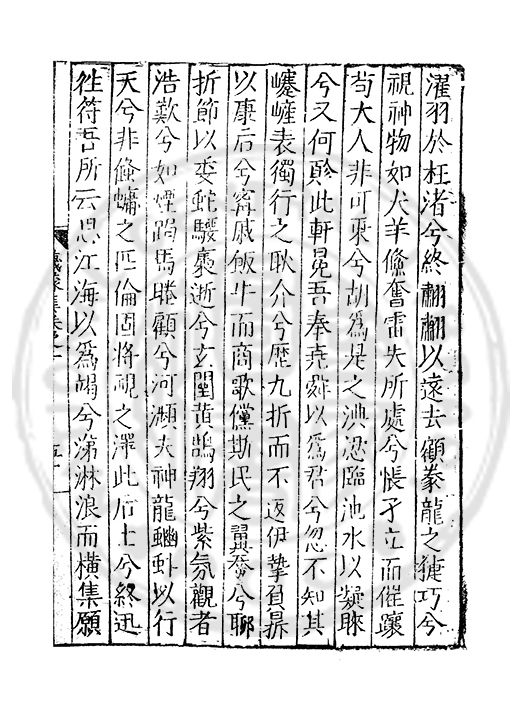 濯羽於枉渚兮終翩翩以遠去顧豢龍之㨗巧兮
視神物如犬羊儵奮雷失所處兮悵矛立而催㱮
苟大人非可乘兮胡為是之淟涊臨池水以凝睇
兮又何歉此軒冕吾奉堯舜以為君兮忽不知其
巇嵼表獨行之耿介兮歷九折而不返伊摯負鼎
以康后兮甯戚飯牛而商歌儻斯民之翼吝兮聊
折節以委蛇駿褭逝兮玄闉黄鵠翔兮紫氛觀者
浩歎兮如煙踢馬睠顧兮河瀕夫神龍蟉虯以行
天兮非儵鱅之匹倫固將硯之澤此后土兮終迅
徃符吾所云思江海以為竭兮涕淋浪而横集願